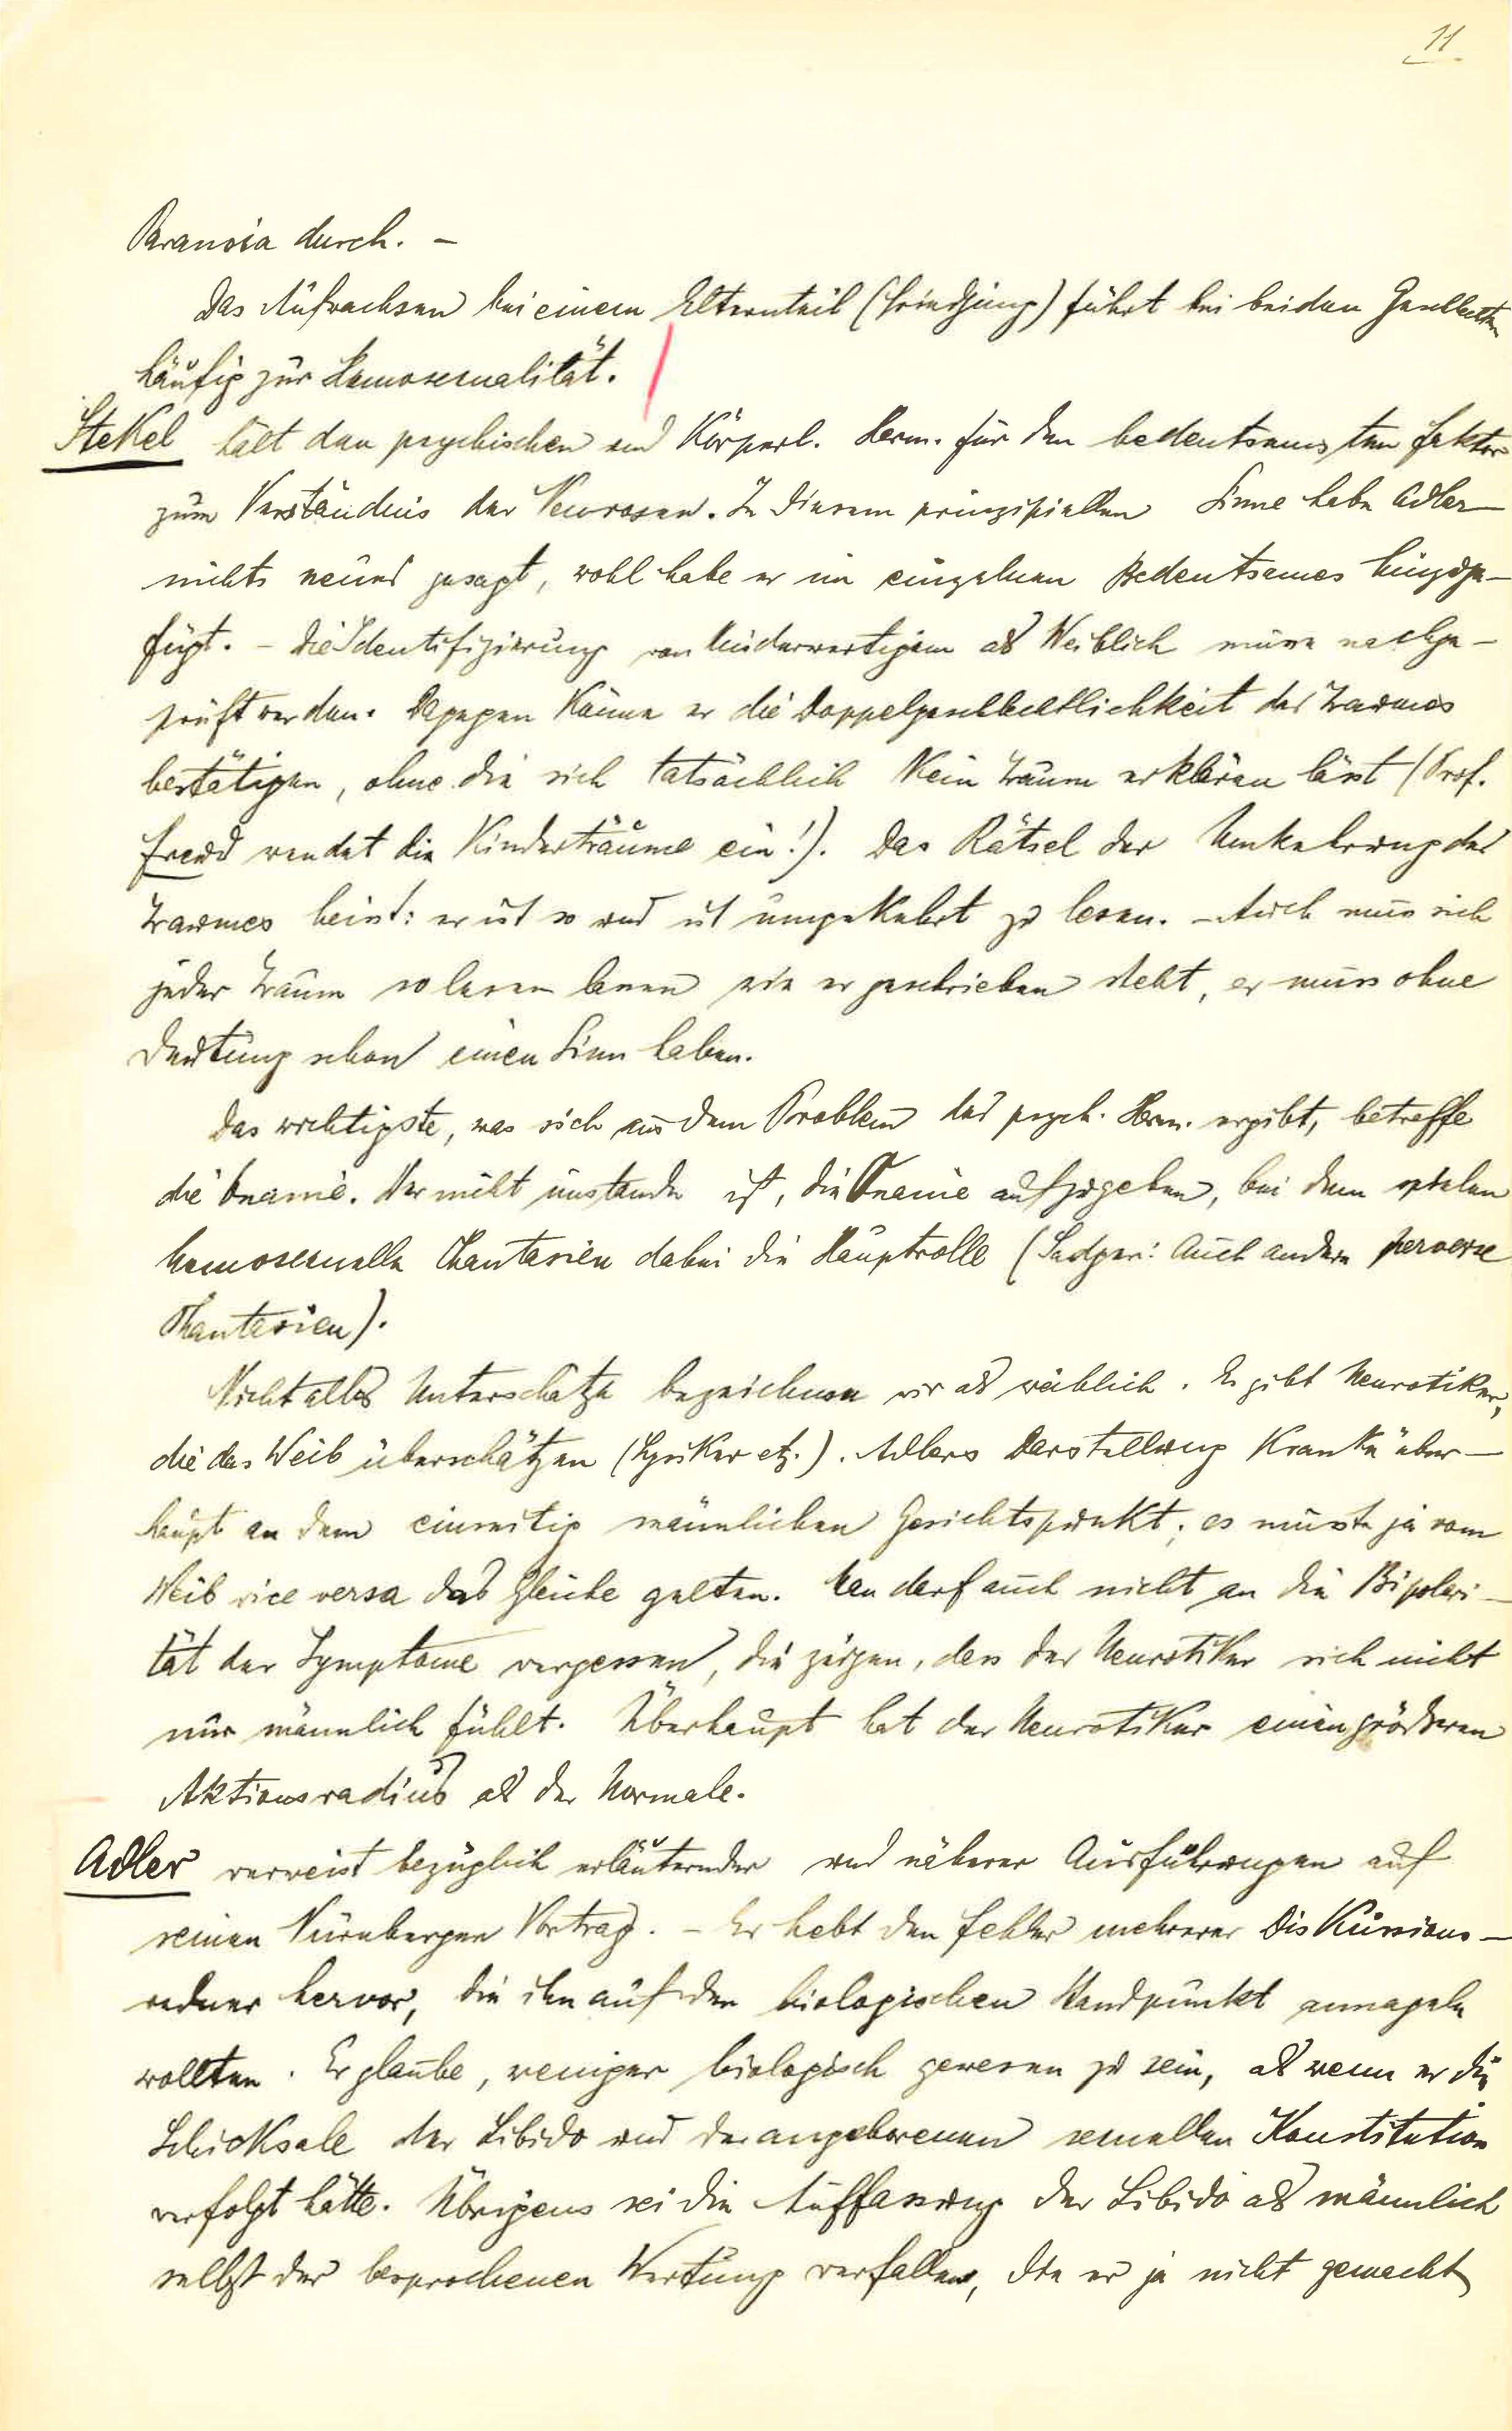 11
Paranoia durch. –
Das Aufwachsen bei einem Elternteil (Friedjung) führt bei beiden Geschlechtern
häufig zur Homosexualität.
Stekel hält den psychischen und Körperl. Herm. für den bedeutsamsten Faktor
zum Verständnis der Neurosen. In diesem prinzipiellen Sinne habe Adler
nichts neues gesagt, wohl habe er im einzelnen Bedeutsames hinzuge-
fügt. – Die Identifizierung von Minderwertigem als Weiblich müsse nachge-
prüft werden. Dagegen Könne er die Doppelgeschlechtlichkeit des Traumes
bestätigen, ohne die sich tatsächlich Kein Traum erklären lässt (Prof.
Freud wendet die Kinderträume ein!). Das Rätsel der Umkehrung des
Traumes heisst: er ist so und ist umgekehrt zu lesen. – Auch muss sich
jeder Traum so lesen lassen wie er geschrieben steht, er muss ohne
Deutung schon einen Sinn haben.
Das wichtigste, was sich aus dem Problem des psych. Herm. ergibt, betreffe
die Onanie. Wer nicht imstande ist, die Onanie aufzugeben, bei dem spielen
homosexuelle Phantasien dabei die Hauptrolle (Sadger: Auch andere perverse
Phantasien).
Nicht alles Unterschätzte bezeichnen wir als weiblich. Es gibt Neurotiker,
die das Weib überschätzen (Lyriker etz.). Adlers Darstellung Kranke über-
haupt an dem einseitig männlichen Gesichtspunkt; es müsste ja vom
Weib vice versa das Gleiche gelten. Man darf auch nicht an die Bipolari-
tät der Symptome vergessen, die zeigen, dass der Neurotiker sich nicht
nur männlich fühlt. Überhaupt hat der Neurotiker einen grösseren
Aktionsradius als der Normale.
Adler verweist bezüglich erläuternder und näherer Ausführungen auf
seinen Nürnberger Vortrag. – Er hebt den Fehler mehrerer Diskussions-
redner hervor, die ihn auf den biologischen Standpunkt annageln
wollten. Er glaube, weniger biologisch gewesen zu sein, als wenn er die
Schicksale der Libido und der angeborenen sexuellen Konstitution
verfolgt hätte. Übrigens sei die Auffassung der Libido als männlich
selbst der besprochenen Wertung verfallen, die er ja nicht gemacht